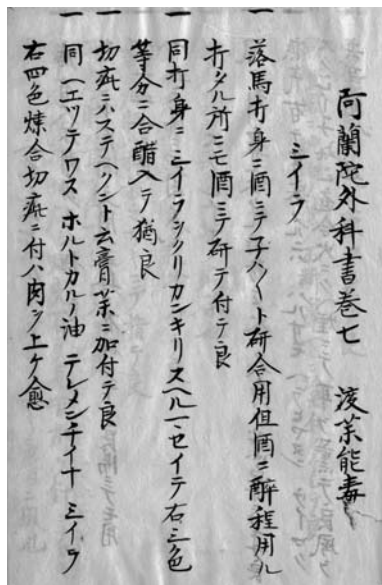 阿蘭陀外科書巻七　渡薬能毒
ミイラ
一 落馬打身ニ酒ニテ子ハ〱ト研合用但酒ニ酔程用ル
打タル所ニモ酒ニテ研テ付テ良
一 同打身ニミイラシクリカンキリスヘルマセイテ右三色
等分ニ合醋入テ猶良
一 切疵ニハステヘント云膏薬ニ加付テ良
一 同ヘエツテワス ホルトカルノ油 テレメンテイナ ミイラ
右四色煉合切疵ニ付ハ肉ヲ上ケ愈